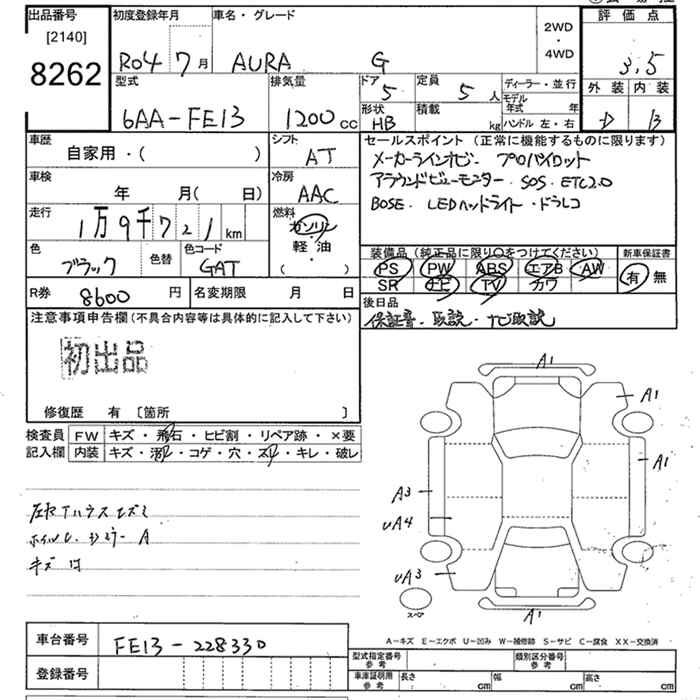 出品番号
[2140]
8262
初度登録年月
R04 7月
車名・グレード
AURA G
2WD
・
4WD
評価点
3.5
外装 内装
D B
型式
6AA-FE13
排気量
1200 cc
ドア
5
定員
5 人
ディーラー・並行
形状
HB
積載
kg
モデル年式 年
ハンドル 左・右
車歴
自家用・( )
シフト
AT
車検
年 月( 日)
冷房
AAC
走行
1万9千721km
燃料
ガソリン
軽・油
( )
色
ブラック
色替
色コード
GAT
R券
8600円
名変期限 月 日
セールスポイント(正常に機能するものに限ります)
メーカーラインナビ・プロパイロット
アラウンドビューモニター・SOS・ETC2.0
BOSE・LEDヘッドライト・ドラレコ
装備品(純正品に限り〇をつけてください)
PS PW ABS エアB AW
SR ナビ TV カワ
新車保証書
有 無
後日品
保証書・取説・ナビ取説
注意事項申告欄(不具合内容等は具体的に記入して下さい)
初出品
修復歴 有 [箇所 ]
検査員記入欄
FW キズ・飛石・ヒビ割・リペア跡・×要
内装 キズ・汚れ・コゲ・穴・スレ・キレ・破レ
A1
A1
A1
A3
UA4
UA3
スペア
A1
A−キズ E−エクボ U−凹み W−補修跡 S−サビ C−腐食 XX−交換済
車台番号
FE13-228330
登録番号
型式指定番号
参考
類別区分番号
参考
車庫証明用
参考
長さ cm 幅 cm 高さ cm